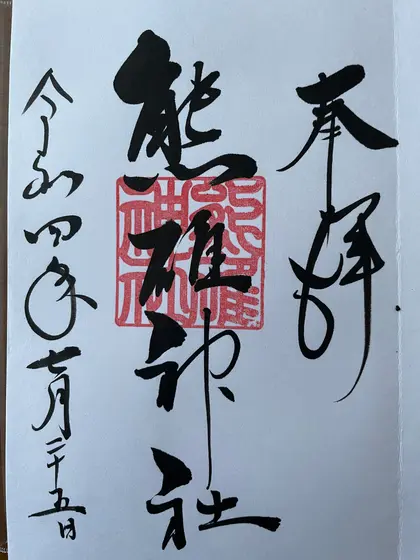 奉拝
熊碓神社
熊碓
神社
令和四年七月二十五日